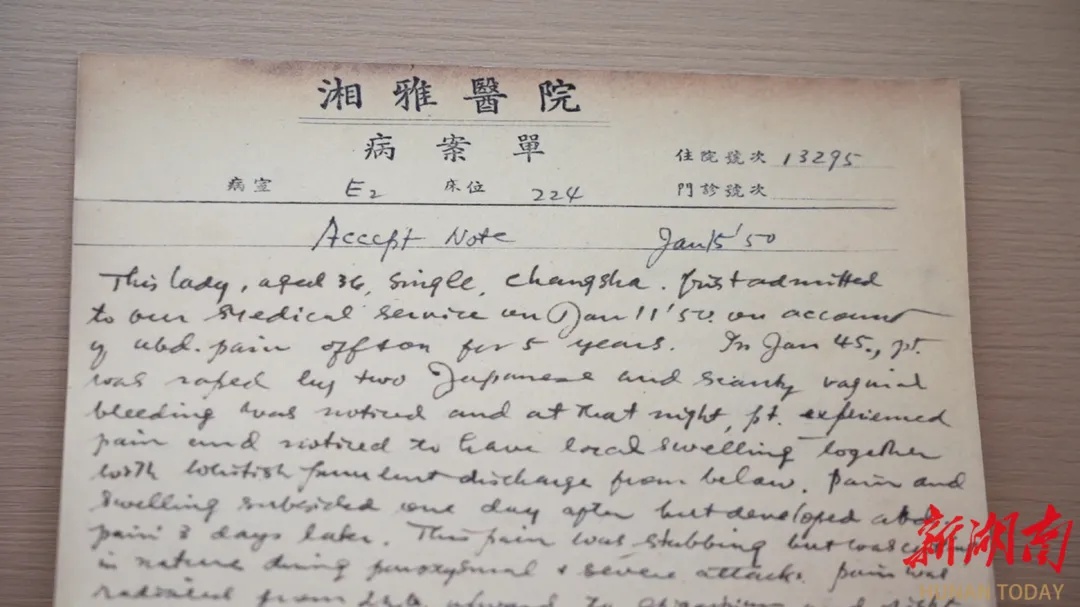 湘雅醫院
病案單
住院號次 13295
病室 E2 床位 224 門診號次
Accept Note Jan 15 '50
This lady, aged 36, single, Changsha. first admitted
to our Medical service on Jan 11 '50. on account
of abd. pain off & on for 5 years. In Jan 45., pt.
was raped by two Japanese and scanty vaginal
bleeding was noticed and at that night, pt. experienced
pain and noticed to have local swelling together
with whitish purulent discharge from below. Pain and
swelling subsided one day after but developed abd.
pain 3 days later. This pain was stabbing but was
in nature during paroxysmal & severe attacks. Pain was
radiated from upward to and
新湖南
HUNAN TODAY